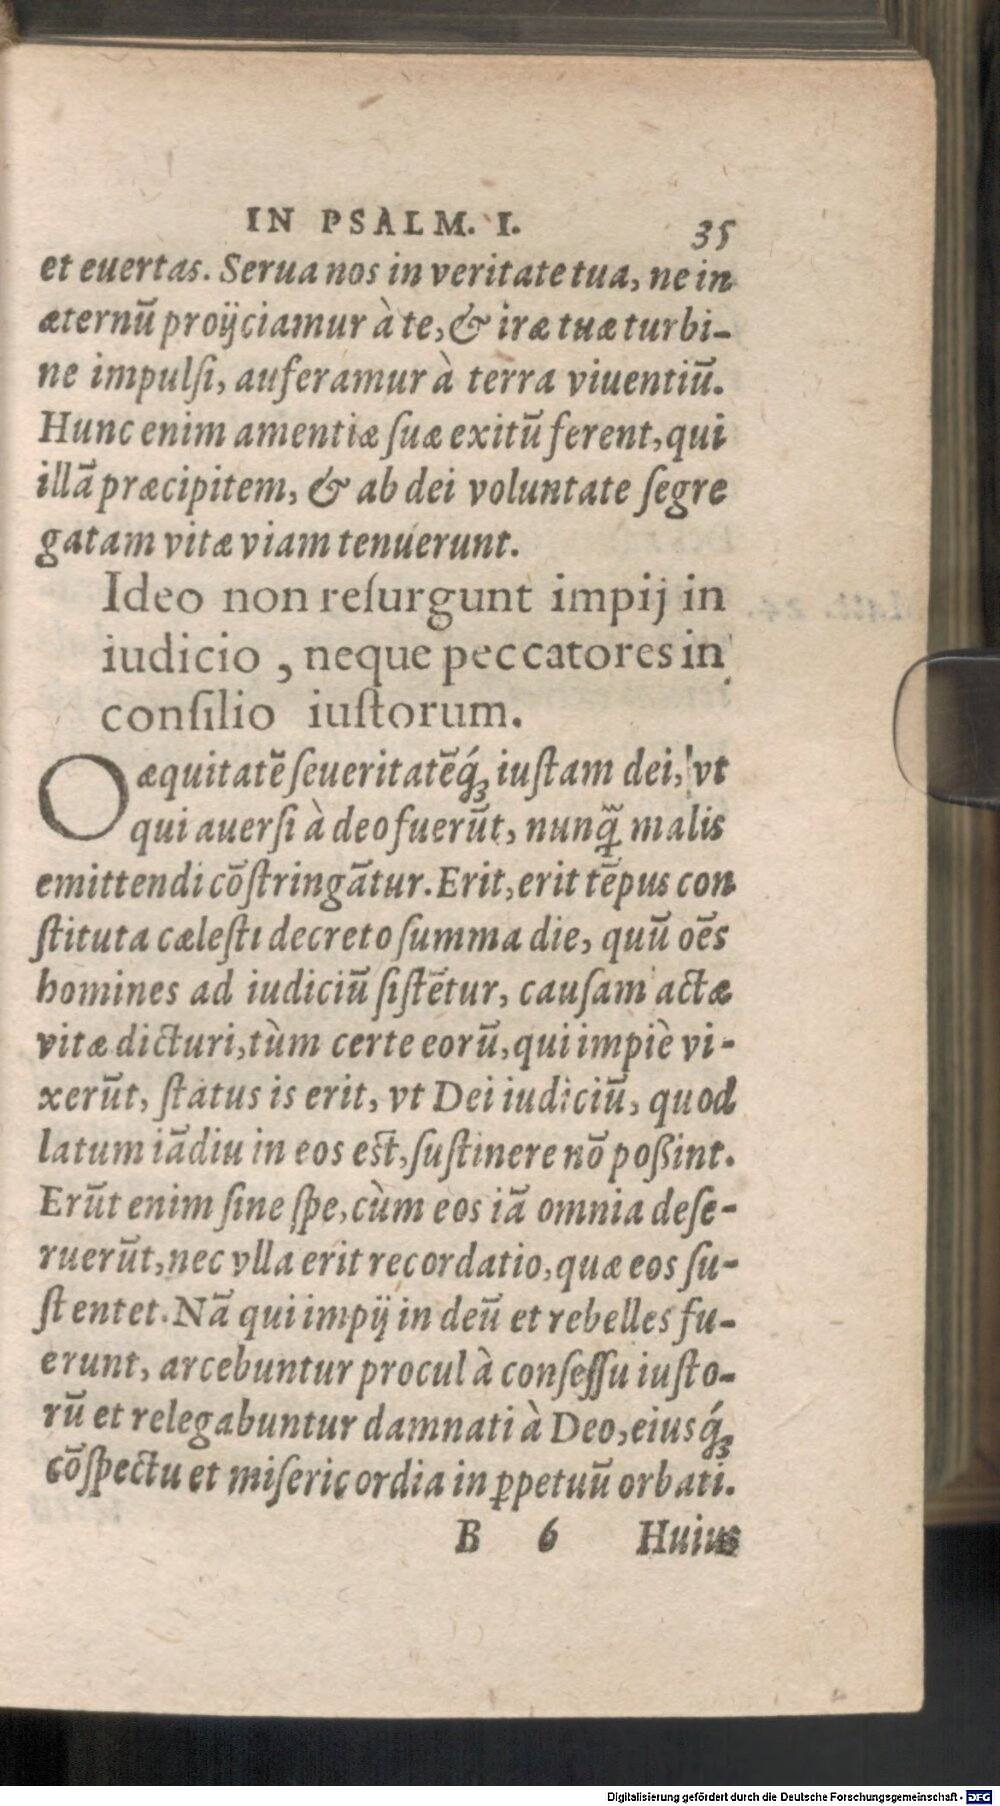 IN PSALM. I. 35
et euertas. Serua nos in veritate tua, ne in
æternũ proijciamur à te, & iræ tuæ turbi-
ne impulſi, auferamur à terra viuentiũ.
Hunc enim amentiæ ſuæ exitũ ferent, qui
illã præcipitem, & ab dei voluntate ſegre
gatam vitæ viam tenuerunt.
Ideo non reſurgunt impij in
iudicio, neque peccatores in
conſilio iuſtorum.
O æquitatẽ ſeueritatẽq́ꝫ iuſtam dei, vt
qui auerſi à deo fuerũt, nunꝗ̃ malis
emittendi cõſtringãtur. Erit, erit tẽpus con
ſtituta cæleſti decreto ſumma die, quũ oẽs
homines ad iudiciũ ſiſtẽtur, cauſam actæ
vitæ dicturi, tùm certe eorũ, qui impiè vi-
xerũt, ſtatus is erit, vt Dei iudiciũ, quod
latum iãdiu in eos eſt, ſuſtinere nõ poßint.
Erũt enim ſine ſpe, cùm eos iã omnia deſe-
ruerũt, nec vlla erit recordatio, quæ eos ſu-
ſtentet. Nã qui impij in deũ et rebelles fu-
erunt, arcebuntur procul à conſeſſu iuſto-
rũ et relegabuntur damnati à Deo, eiusq́ꝫ
cõſpectu et miſericordia in ꝑpetuũ orbati.
B 6 Huius
Digitalisierung gefördert durch die Deutsche Forschungsgemeinschaft - DFG